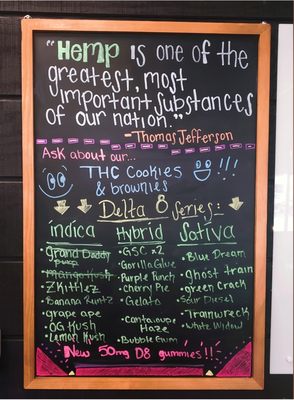 "Hemp is one of the
greatest, most
important substances
of our nation."
-Thomas Jefferson
Ask about our...
THC Cookies
& brownies
!!!
Delta 8 Series:
indica
Hybrid
Sativa
Grand Daddy
purp
Mango Kush
Zkittlez
Banana Runtz
grape ape
OG Kush
Lemon Kush
GSC x2
Gorilla Glue
Purple Punch
Cherry Pie
Gelato
Cantaloupe
Haze
Bubble Gum
Blue Dream
ghost train
green Crack
Sour Diesel
Trainwreck
White Widow
New 50mg D8 gummies!!